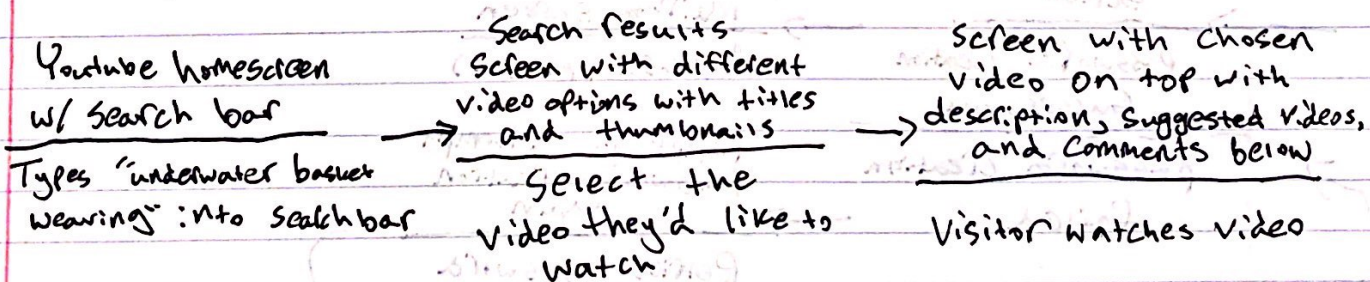 Youtube homescreen
w/ search bar
Types "underwater basket
weaving" into searchbar
Search results
Screen with different
video options with titles
and thumbnails
Select the
video they'd like to
watch
Screen with chosen
video on top with
description, suggested videos,
and comments below
Visitor watches video